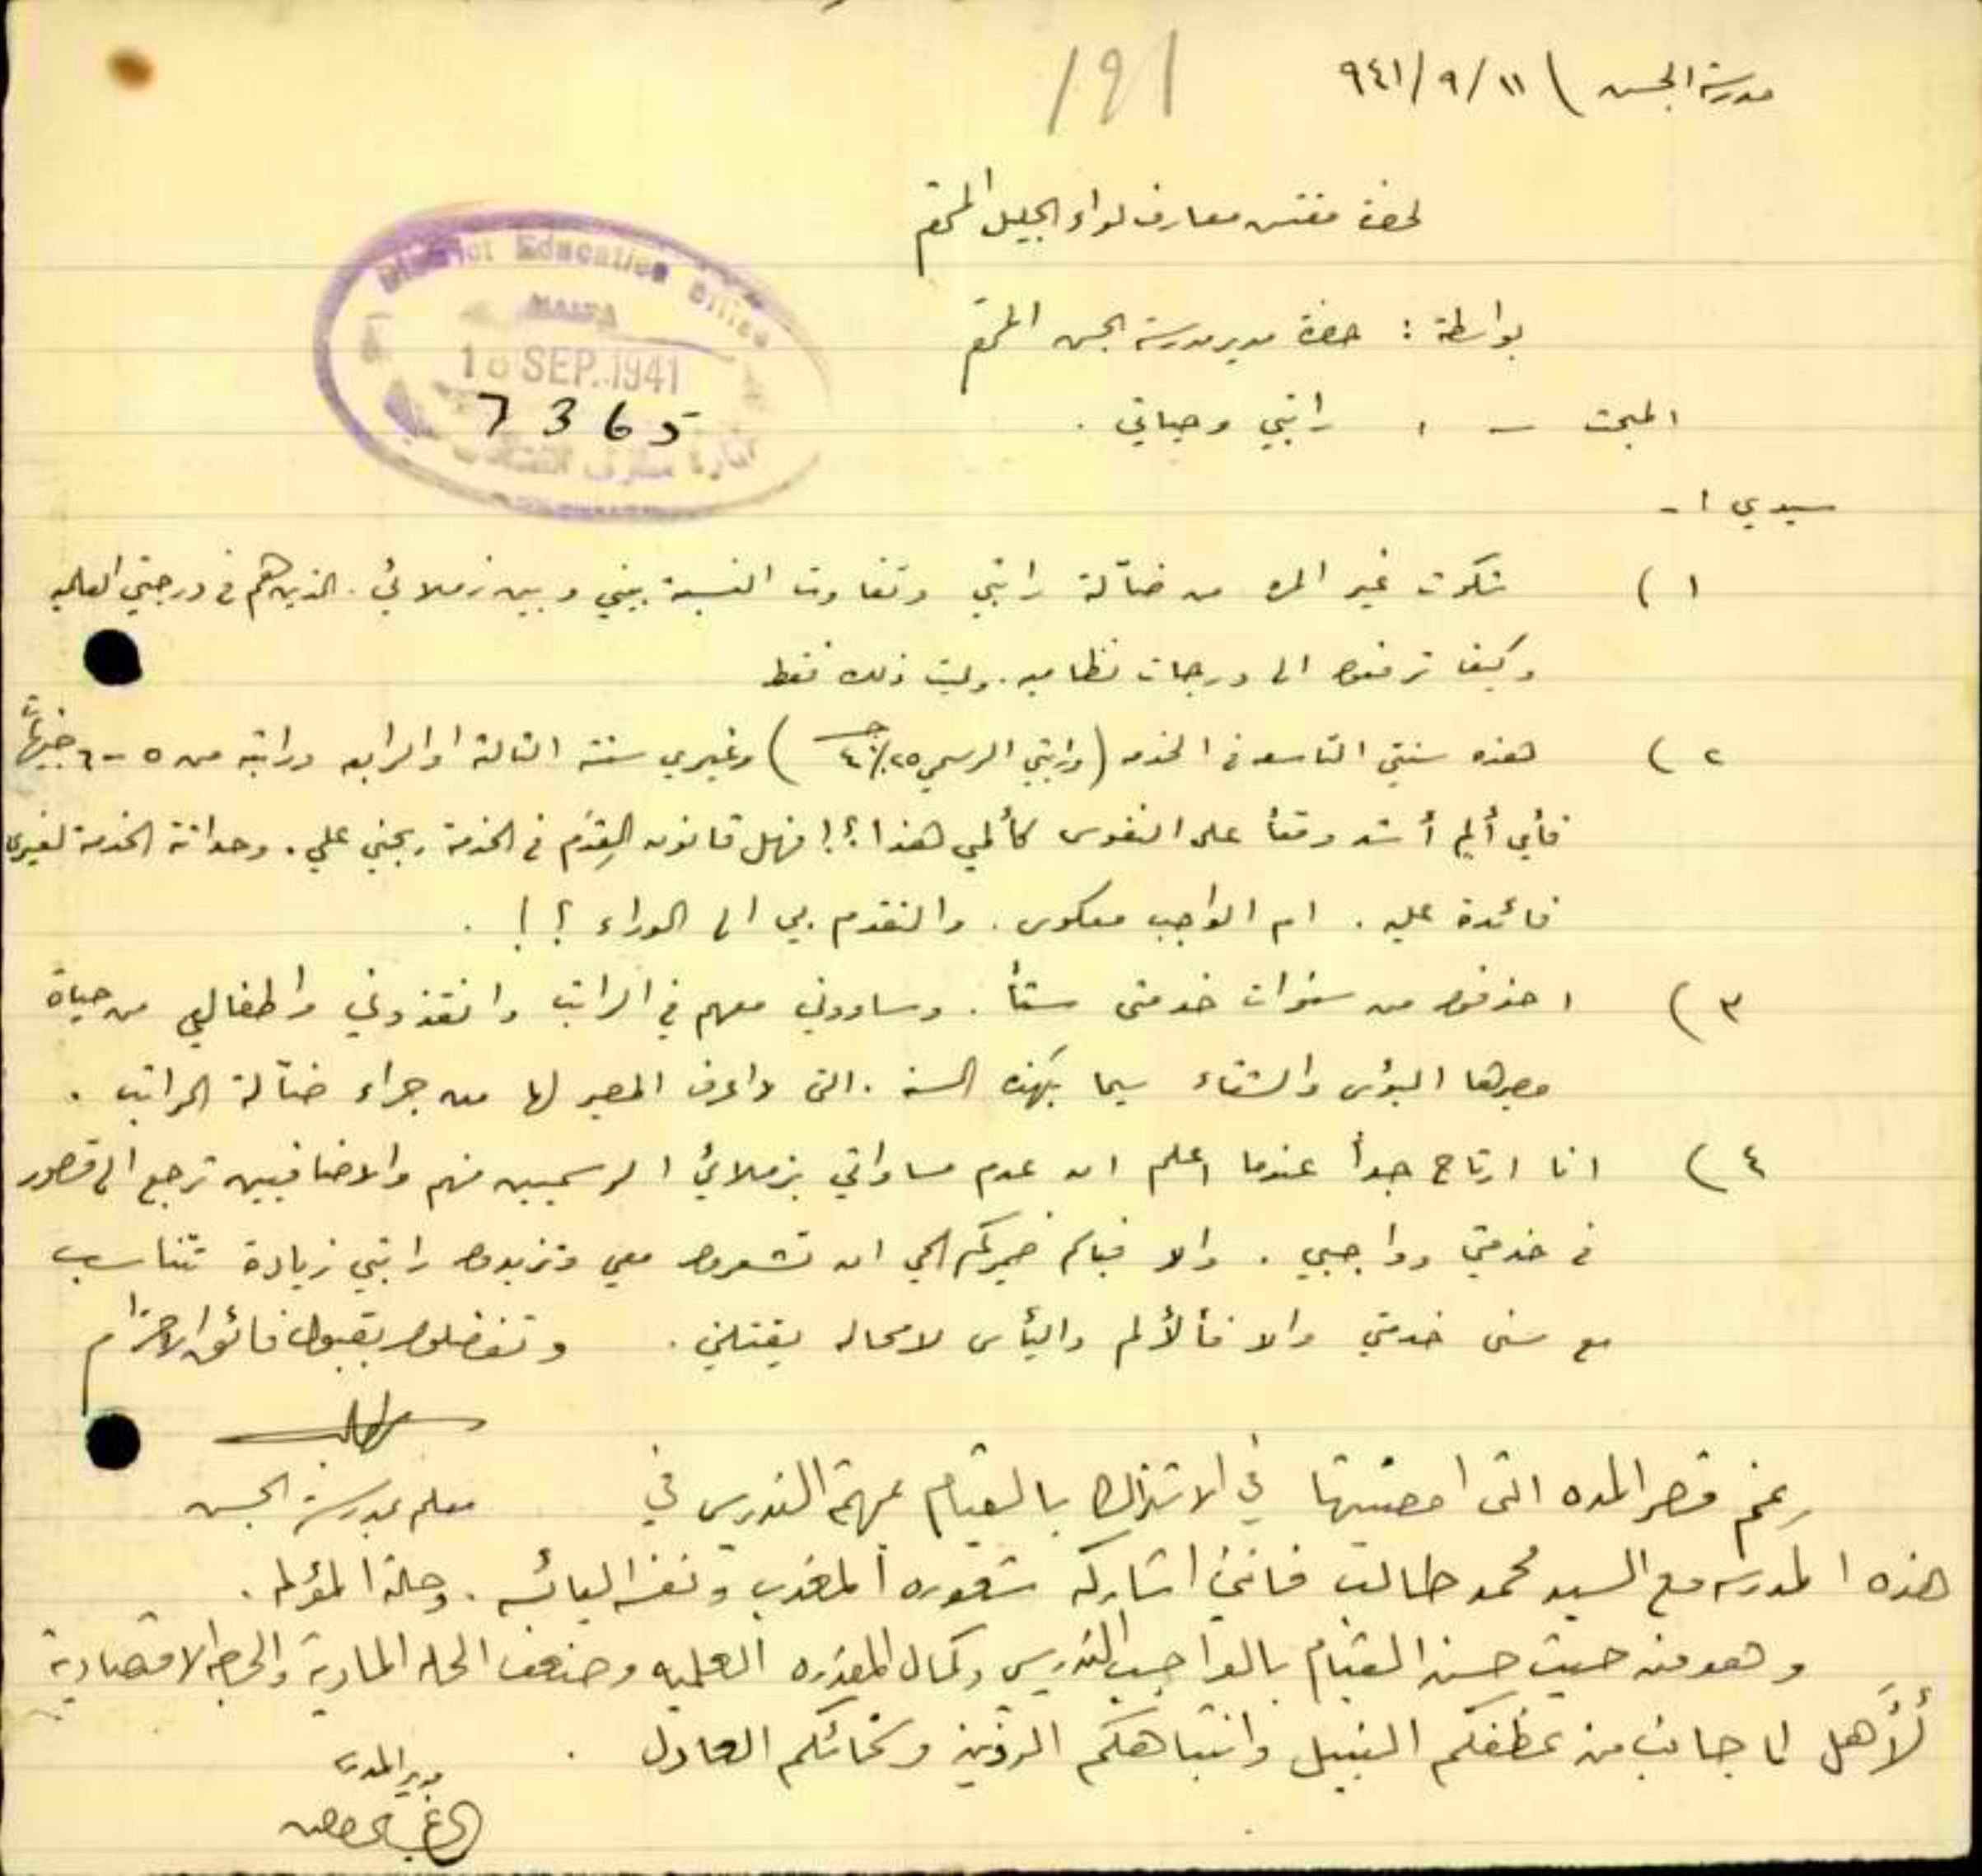 مدرسة الجسر ) ١١ / ٩ / ٩٤١
191
لحضرة مفتش معارف لواء الجليل المحترم
District Education Office
HAIFA
10 SEP. 1941
7365
بواسطة : حضرة مدير مدرسة الجسر المحترم
المبحث - : راتبي وحياتي .
سيدي :-
١ ) شكوت غير المرة من ضآلة راتبي وتفاوت النسبة بيني وبين زملائي . الذين هم في درجتي العلميه
وكيف ترفعوا الى درجات نظاميه . وليت ذلك فقط
٢ ) هذه سنتي التاسعه في الخدمه ( وراتبي الرسمي ) وغيري سنته الثالثة او الرابعه وراتبه من ٥ - ٦ جنيهات
فأي ألم أشد وقعاً على النفوس كألمي هذا ؟! فهل قانون القِدَم في الخدمة يجني علي . وحداثة الخدمة لغيري
فائدة عليه . ام الواجب معكوس . والتقدم بي الى الوراء ؟ ! .
٣ ) احذفوا من سنوات خدمتي ستاً . وساووني معهم في الراتب وانقذوني واطفالي من حياة
مصيرها البؤس والشقاء سيما بهذه السنة . التي لا اعرف المصير لها من جراء ضآلة الراتب .
٤ ) انا ارتاح جداً عندما اعلم ان عدم مساواتي بزملائي الرسميين منهم والاضافيين ترجع الى قصور
في خدمتي وواجبي . والا فباسم ضميركم الحي ان تشعروا معي وتزيدوا راتبي زيادة تتناسب
مع سني خدمتي والا فألألم واليأس لا محاله يقتلني . وتفضلوا بقبول فائق الاحترام
معلم بمدرسة الجسر
رغم قصر المده التي امضيتها في الاشتراك بالقيام بمهمة التدريس في
هذه المدرسه مع السيد محمد طالب فانني اشاركه شعوره المعذب ونفسه البائسه . وحالته المؤلمه .
وهو من حيث حسن القيام بالواجب التدريسي وكمال المقدره العلميه وضعف الحاله الماديه والاقتصادية
لأهل الى جانب من عطفكم النبيل وانتباهكم الرزين وسخائكم العادل .
مدير المدرسه